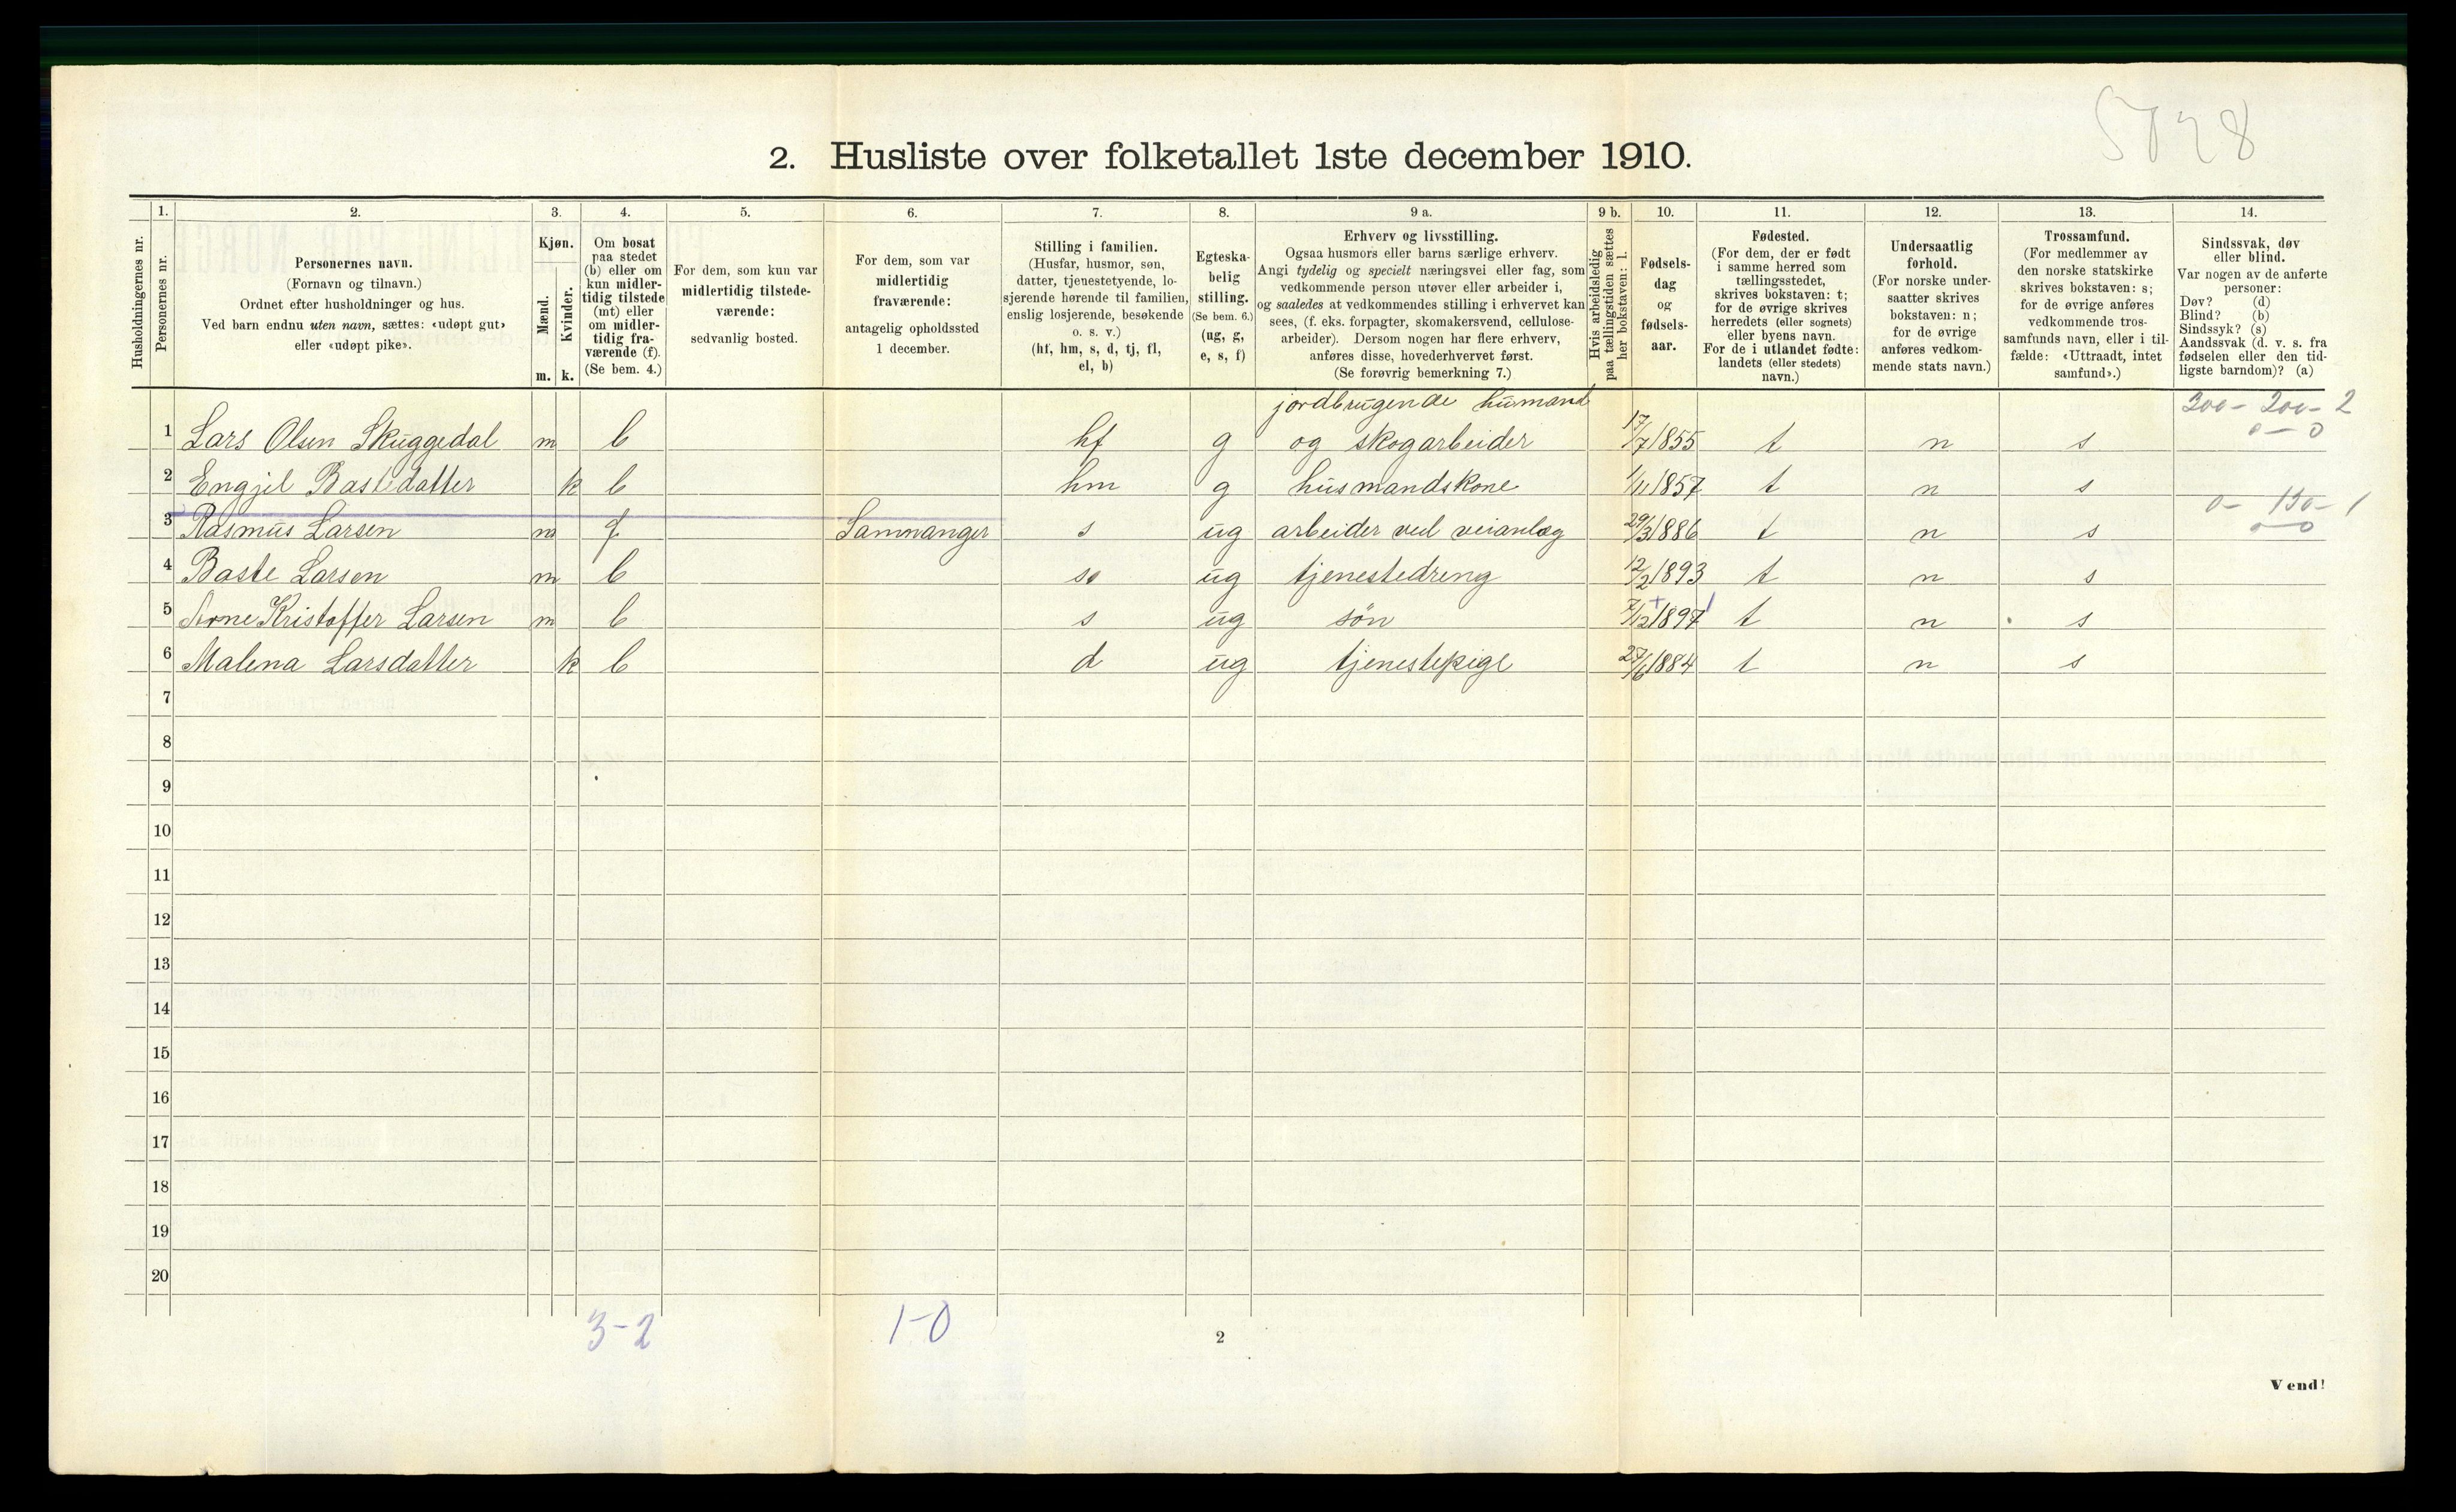 5028
2. Husliste over folketallet 1ste december 1910.
Husholdningernes nr.
1.
Personernes nr.
2.
Personernes navn.
(Fornavn og tilnavn.)
Ordnet efter husholdninger og hus.
Ved barn endnu uten navn, sættes: «udøpt gut»
eller «udøpt pike».
3.
Kjøn.
Mænd.
Kvinder.
m. k.
4.
Om bosat
paa stedet
(b) eller om
kun midler-
tidig tilstede
(mt) eller
om midler-
tidig fra-
værende (f).
(Se bem. 4.)
5.
For dem, som kun var
midlertidig tilstede-
værende:
sedvanlig bosted.
6.
For dem, som var
midlertidig
fraværende:
antagelig opholdssted
1 december.
7.
Stilling i familien.
(Husfar, husmor, søn,
datter, tjenestetyende, lo-
sjerende hørende til familien,
enslig losjerende, besøkende
o. s. v.)
(hf, hm, s, d, tj, fl,
el, b)
8.
Egteska-
belig
stilling.
(Se bem. 6.)
(ug, g,
e, s, f)
9 a.
Erhverv og livsstilling.
Ogsaa husmors eller barns særlige erhverv.
Angi tydelig og specielt næringsvei eller fag, som
vedkommende person utøver eller arbeider i,
og saaledes at vedkommendes stilling i erhvervet kan
sees, (f. eks. forpagter, skomakersvend, cellulose-
arbeider). Dersom nogen har flere erhverv,
anføres disse, hovederhvervet først.
(Se forøvrig bemerkning 7.)
9 b.
Hvis arbeidsledig
paa tællingstiden sættes
her bokstaven: l.
10.
Fødsels-
dag
og
fødsels-
aar.
11.
Fødested.
(For dem, der er født
i samme herred som
tællingsstedet,
skrives bokstaven: t;
for de øvrige skrives
herredets (eller sognets)
eller byens navn.
For de i utlandet fødte:
landets (eller stedets)
navn.)
12.
Undersaatlig
forhold.
(For norske under-
saatter skrives
bokstaven: n;
for de øvrige
anføres vedkom-
mende stats navn.)
13.
Trossamfund.
(For medlemmer av
den norske statskirke
skrives bokstaven: s;
for de øvrige anføres
vedkommende tros-
samfunds navn, eller i til-
fælde: «Uttraadt, intet
samfund».)
14.
Sindssvak, døv
eller blind.
Var nogen av de anførte
personer:
Døv? (d)
Blind? (b)
Sindssyk? (s)
Aandssvak (d. v. s. fra
fødselen eller den tid-
ligste barndom)? (a)
jordbrugende husmand 300 - 200 - 2
1 Lars Olsen Skuggedal m b hf g og skogarbeider 17/7 1855 t n s 0 - 0
2 Engjel Bastedatter k b hm g husmandskone 1/11 1857 t n s
0 - 150 - 1
3 Rasmus Larsen m f Samnanger s ug arbeider ved veianlæg 29/3 1886 t n s 0-0
4 Baste Larsen m b s ug tjenestedreng 12/2 1893 t n s
5 Arne Kristoffer Larsen m b s ug søn 7/12 1897 t n s
6 Malena Larsdatter k b d ug tjenestepige 27/6 1884 t n s
7
8
9
10
11
12
13
14
15
16
17
18
19
20
3-2 1-0
2
Vend!